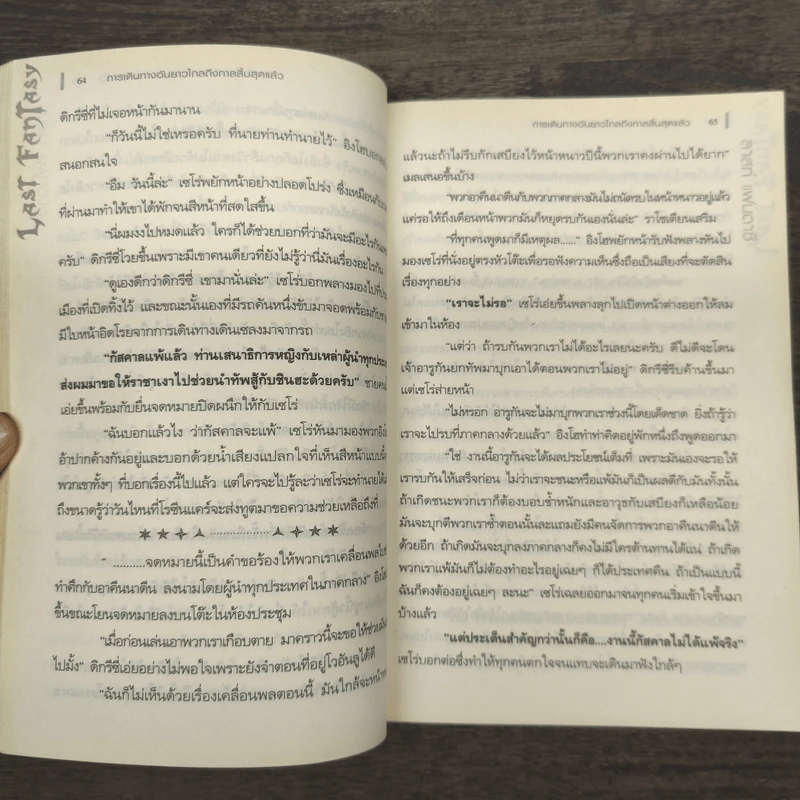 LAST FANTASY
64 การเดินทางอันยาวไกลถึงกาลสิ้นสุดแล้ว
ดิกรีซี่ที่ไม่เจอหน้ากันมานาน
“ก็วันนี้ไม่ใช่เหรอครับ ที่นายท่านทำนายไว้” อิงโฮบอก
สนอกสนใจ
“อืม วันนี้ล่ะ” เซโร่พยักหน้าอย่างปลอดโปร่ง ซึ่งเหมือนกับ
ที่ผ่านมาทำให้เขาได้พักจนสีหน้าที่สดใสขึ้น
“นี่ผมงงไปหมดแล้ว ใครก็ได้ช่วยบอกที่ว่ามันจะมีอะไรกัน
ครับ” ดิกรีซี่โวยขึ้นเพราะมีเขาคนเดียวที่ยังไม่รู้ว่านี่มันเรื่องอะไรกัน
“ดูเองดีกว่าดิกรีซี่ เขามานั่นล่ะ” เซโร่บอกพลางมองไปที่
เมืองที่เปิดทิ้งไว้ และขณะนั้นเองที่มีรถคันหนึ่งขับมาจอดพร้อมกับ
มีใบหน้าอิดโรยจากการเดินทางเดินเซลงมาจากรถ
“กัสคาลแพ้แล้ว ท่านเสนาธิการหญิงกับเหล่าผู้นำทุกประ
ส่งผมมาขอให้ราชาเงาไปช่วยนำทัพสู้กับชินฮะด้วยครับ” ชาย
เอ่ยขึ้นพร้อมกับยื่นจดหมายปิดผนึกให้กับเซโร่
“ฉันบอกแล้วไง ว่ากัสคาลจะแพ้” เซโร่หันมามองพวกอิงโฮ
อ้าปากค้างกันอยู่และบอกด้วยน้ำเสียงแปลกใจที่เห็นสีหน้าแบบ
พวกเขาทั้งๆ ที่บอกเรื่องนี้ไปแล้ว แต่ใครจะไปรู้ล่ะว่าเซโร่จะทำนายได้
ถึงขนาดรู้ว่าวันไหนที่โรซีนแคร์จะส่งทูตมาขอความช่วยเหลือถึงที่
“ ..........จดหมายนี้เป็นคำขอร้องให้พวกเราเคลื่อนพลไป
ทำศึกกับอาคีนนาดีน ลงนามโดยผู้นำทุกประเทศในภาคกลาง” อิงโฮ
ขึ้นขณะโยนจดหมายลงบนโต๊ะในห้องประชุม
“เมื่อก่อนเล่นเอาพวกเราเกือบตาย มาคราวนี้จะขอให้ช่วย
ไปมั้ง” ดิกรีซี่เอ่ยอย่างไม่พอใจเพราะยังจำตอนที่อยู่โวอันลูได้ดี
“ฉันก็ไม่เห็นด้วยเรื่องเคลื่อนพลตอนนี้ มันใกล้จะหน้า
การเดินทางอันยาวไกลถึงกาลสิ้นสุดแล้ว 65
ลาสท์ แฟนตาซี
แล้วนะถ้าไม่รีบกักเสบียงไว้หน้าหนาวปีนี้พวกเราคงผ่านไปได้ยาก”
เมลเสนอขึ้นบ้าง
“พวกอาคีนนาดีนกับพวกภาคกลางมันไม่ถนัดรบในหน้าหนาวอยู่แล้ว
แค่รอให้ถึงเดือนหน้าพวกมันก็หยุดรบกันเองนั่นล่ะ” ราโชเดียนเสริม
“ที่ทุกคนพูดมาก็มีเหตุผล......” อิงโฮพยักหน้ารับฟังพลางหันไป
มองเซโร่ที่นั่งอยู่ตรงหัวโต๊ะเพื่อรอฟังความเห็นซึ่งถือเป็นเสียงที่จะตัดสิน
เรื่องทุกอย่าง
“เราจะไม่รอ” เซโร่เอ่ยขึ้นพลางลุกไปเปิดหน้าต่างออกให้ลม
เข้ามาในห้อง
“แต่ว่า ถ้ารบกันพวกเราไม่ได้อะไรเลยนะครับ ดีไม่ดีจะโดน
เจ้าอารูกันยกทัพมาบุกเอาได้ตอนพวกเราไม่อยู่” ดิกรีซี่รีบค้านขึ้นมา
แต่เซโร่ส่ายหน้า
“ไม่หรอก อารูกันจะไม่มาบุกพวกเราช่วงนี้โดยเด็ดขาด ยิ่งถ้ารู้ว่า
เราจะไปรบที่ภาคกลางด้วยแล้ว” อิงโฮทำท่าคิดอยู่พักหนึ่งถึงพูดออกมา
“ใช่ งานนี้อารูกันจะได้ผลประโยชน์เต็มที่ เพราะมันเองจะรอให้
เรารบกันให้เสร็จก่อน ไม่ว่าเราจะชนะหรือแพ้มันก็เป็นผลดีกับมันทั้งนั้น
ถ้าเกิดชนะพวกเราก็ต้องบอบช้ำหนักและอาวุธกับเสบียงก็เหลือน้อย
มันจะบุกตีพวกเราซ้ำตอนนั้นละแถมยังมีคนจัดการพวกอาคีนนาดีนให้
ด้วยอีก ถ้าเกิดมันจะบุกลงภาคกลางก็คงไม่มีใครต้านทานได้แน่ ถ้าเกิด
พวกเราแพ้มันก็ไม่ต้องทำอะไรอยู่เฉยๆ ก็ได้ประเทศคืน ถ้าเป็นแบบนี้
ฉันก็คงต้องอยู่เฉยๆ ละนะ” เซโร่เฉลยออกมาจนทุกคนเริ่มเข้าใจขึ้นมา
บ้างแล้ว
“แต่ประเด็นสำคัญกว่านั้นก็คือ....งานนี้กัสคาลไม่ได้แพ้จริง”
เซโร่บอกต่อซึ่งทำให้ทุกคนตกใจจนแทบจะเดินมาฟังใกล้ๆ